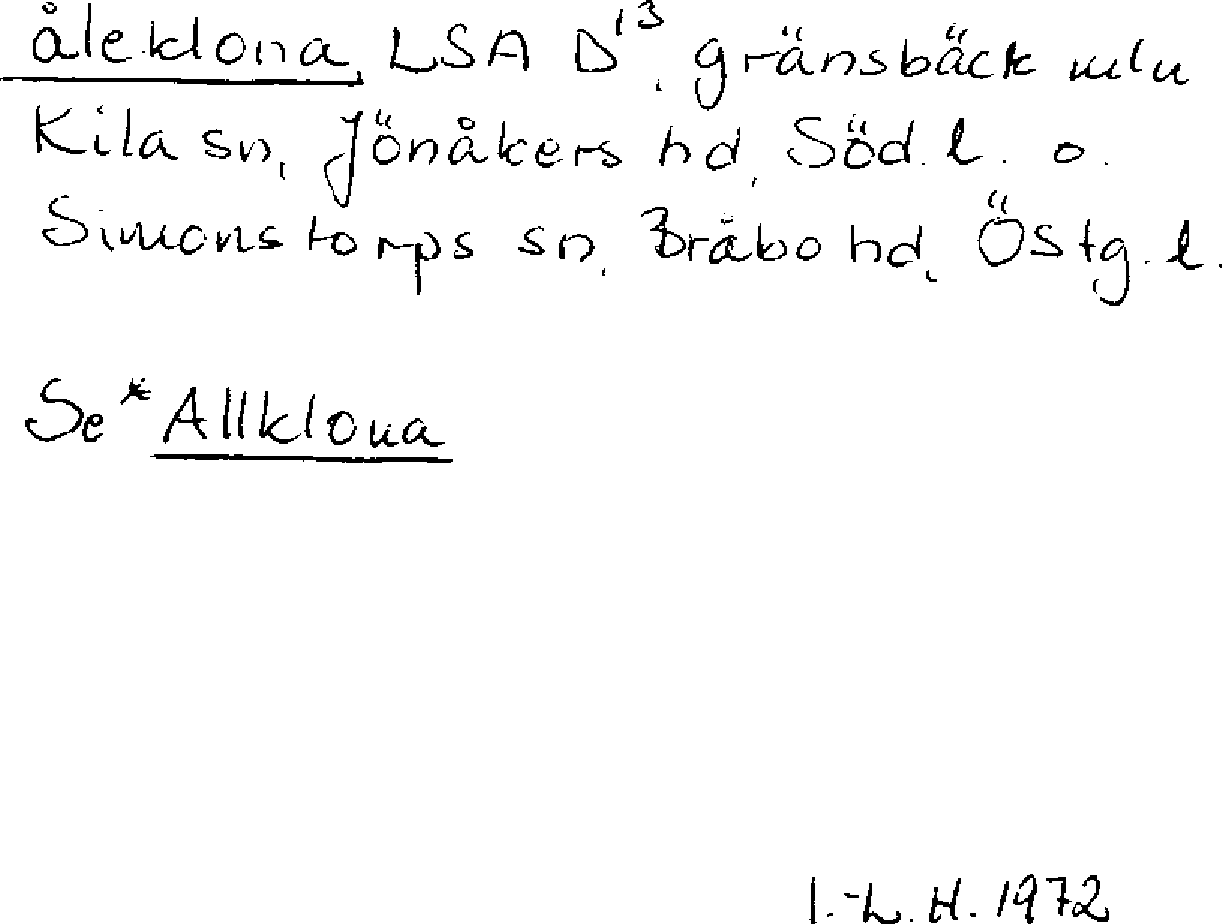 åleklona, LSA D¹³, gränsbäck mln
Kila sn, Jönåkers hd, Söd.l. o.
Simonstorps sn, Bråbo hd, Östg.l.
Se *Allklona
I.-L. H. 1972